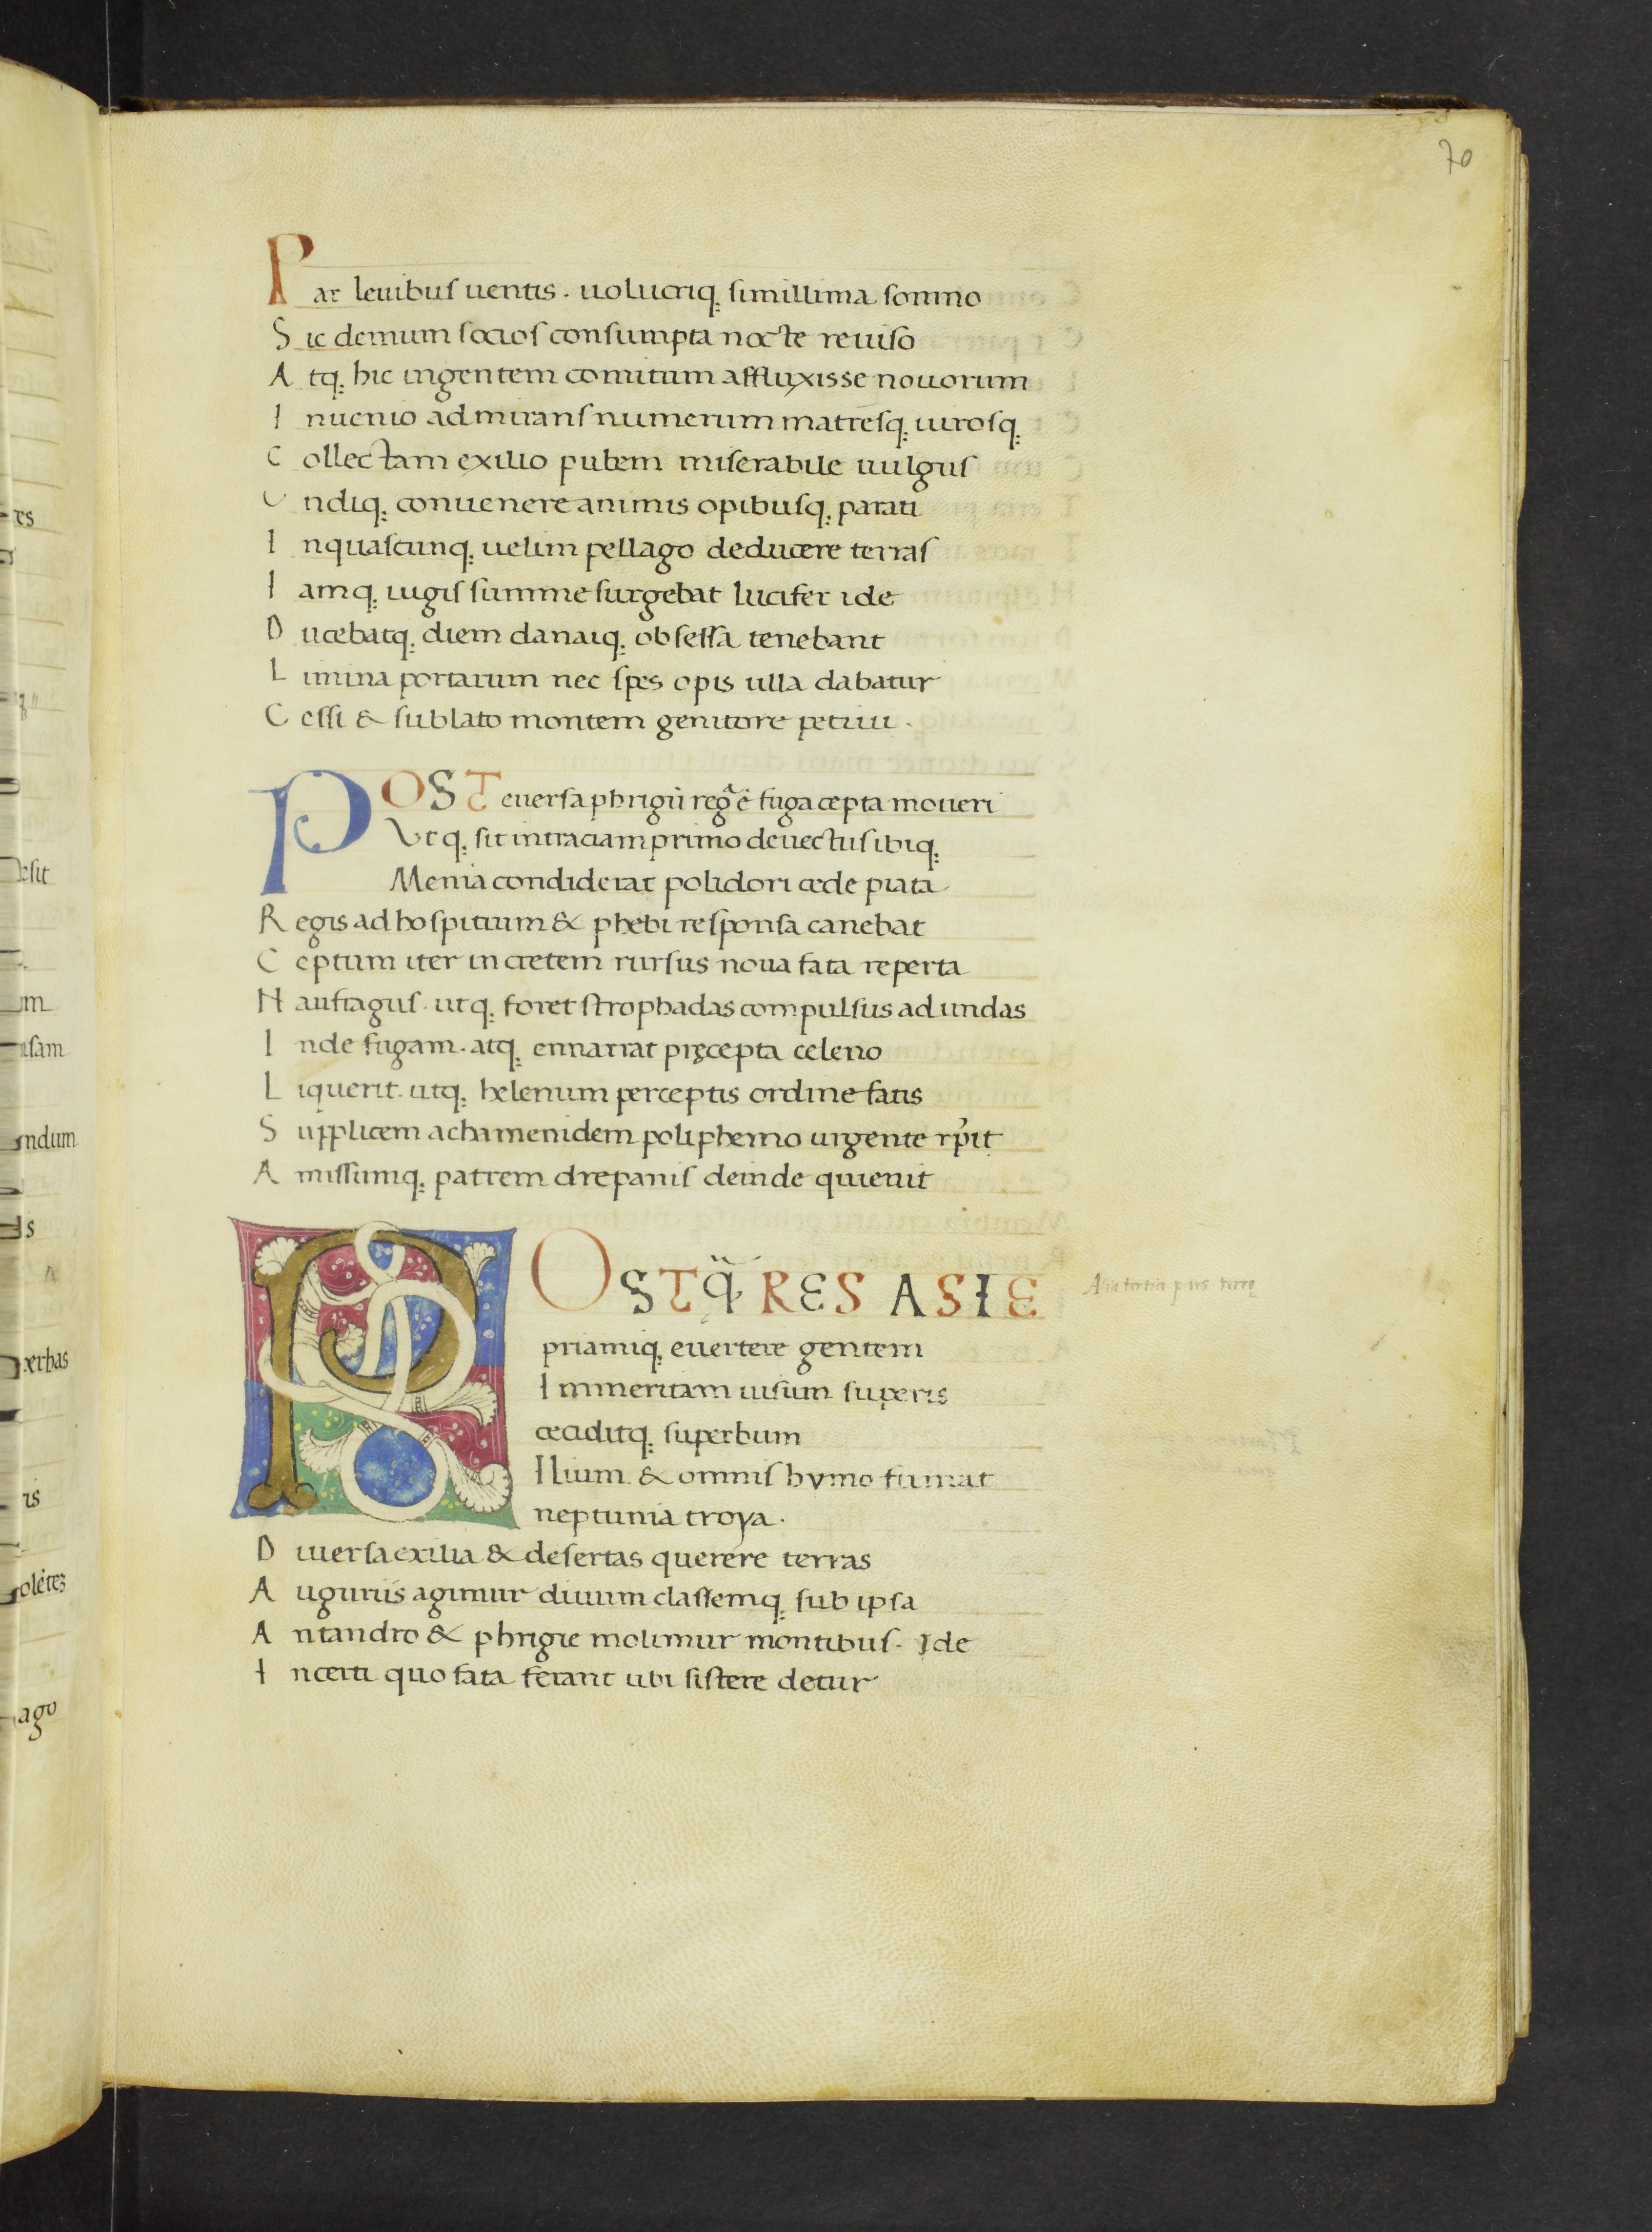 70
Par leuibus uentis. uolucriq; simillima somno
Sic demum socios consumpta nocte reuiso
Atq; hic ingentem comitum affluxisse nouorum
Inuenio admirans numerum matresq; uirosq;
Collectam exilio pubem miserabile uulgus
Undiq; conuenere animis opibusq; parati
Inquascunq; uelim pellago deducere terras
Iamq; iugis summe surgebat lucifer ide
Ducebatq; diem danaiq; obsessa tenebant
Limina portarum nec spes opis ulla dabatur
Cessi & sublato montem genitore petiui.
POST euersa phrigiū regᵃ ē fuga cepta moueri
Vtq; sit intraciam primo deuectus ibiq;
Menia condiderat polidori cede piata
Regis ad hospitium & phebi responsa canebat
Ceptum iter in cretem rursus noua fata reperta
Naufragus. utq; foret strophadas compulsus ad undas
Inde fugam. atq; ennarrat pręcepta celeno
Liquerit. utq; helenum perceptis ordine fatis
Supplicem achimenidem poliphemo urgente rp̄it
Amissumq; patrem drepanis deinde quieuit
POSTQ̃ RES ASIE
Asia tertia pars terrę
priamiq; euertere gentem
Immeritam uisum superis
ceciditq; superbum
Ilium. & omnis hymo fumat
neptunia troya.
Diuersa exilia & desertas querere terras
Auguriis agimur diuum classemq; sub ipsa
Antandro & phrigie molimur montibus. Ide
Incerti quo fata ferant ubi sistere detur
es
esit
m
usam
ndum
s
xerbas
is
olētes
ago